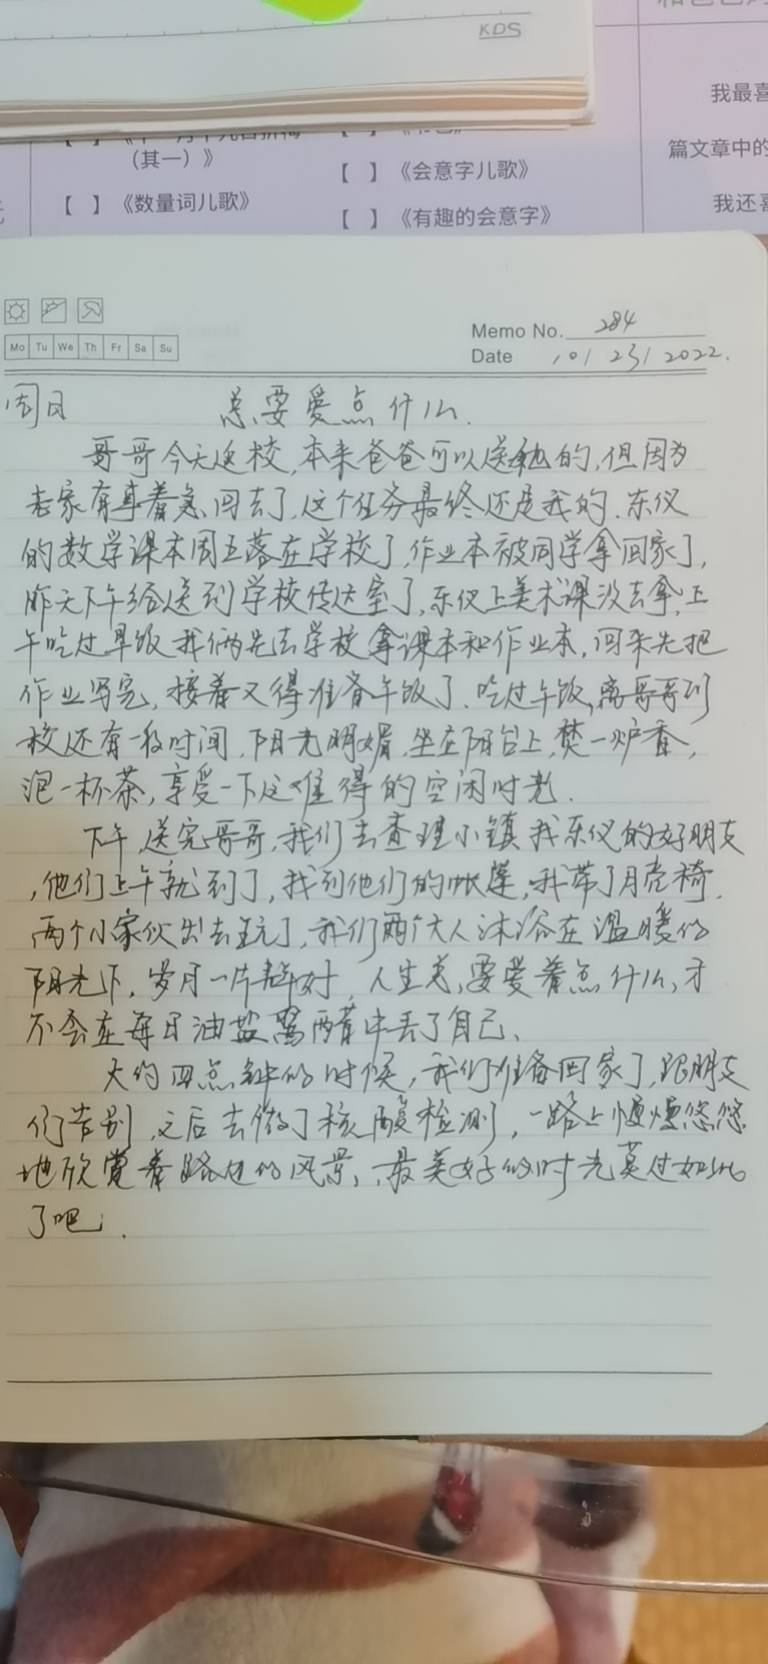 KDS
我最喜
（其一）》
【 】《会意字儿歌》
篇文章中的
【 】《数量词儿歌》
【 】《有趣的会意字》
我还喜
Memo No. 284
Mo Tu We Th Fr Sa Su
Date 10/23/2022.
周日 总要爱点什么.
哥哥今天返校,本来爸爸可以送他的,但因为
老家有事着急回去了,这个任务最终还是我的.东仪
的数学课本周五落在学校了,作业本被同学拿回家了,
昨天下午给送到学校传达室了,东仪上美术课没去拿,上
午吃过早饭我俩先去学校拿课本和作业本,回来先把
作业写完,接着又得准备午饭了.吃过午饭,离哥哥到
校还有一段时间,阳光明媚,坐在阳台上,焚一炉香,
泡一杯茶,享受一下这难得的空闲时光.
下午送完哥哥,我们去查理小镇找东仪的好朋友
,他们上午就到了,找到他们的帐篷,我带了月亮椅.
两个小家伙出去玩了,我们两个大人沐浴在温暖的
阳光下,岁月一片静好,人生总要爱着点什么,才
不会在每日油盐酱醋中丢了自己.
大约四点钟的时候,我们准备回家了,跟朋友
们告别,之后去做了核酸检测,一路上慢慢悠悠
地欣赏着路边的风景,最美好的时光莫过如此
了吧.